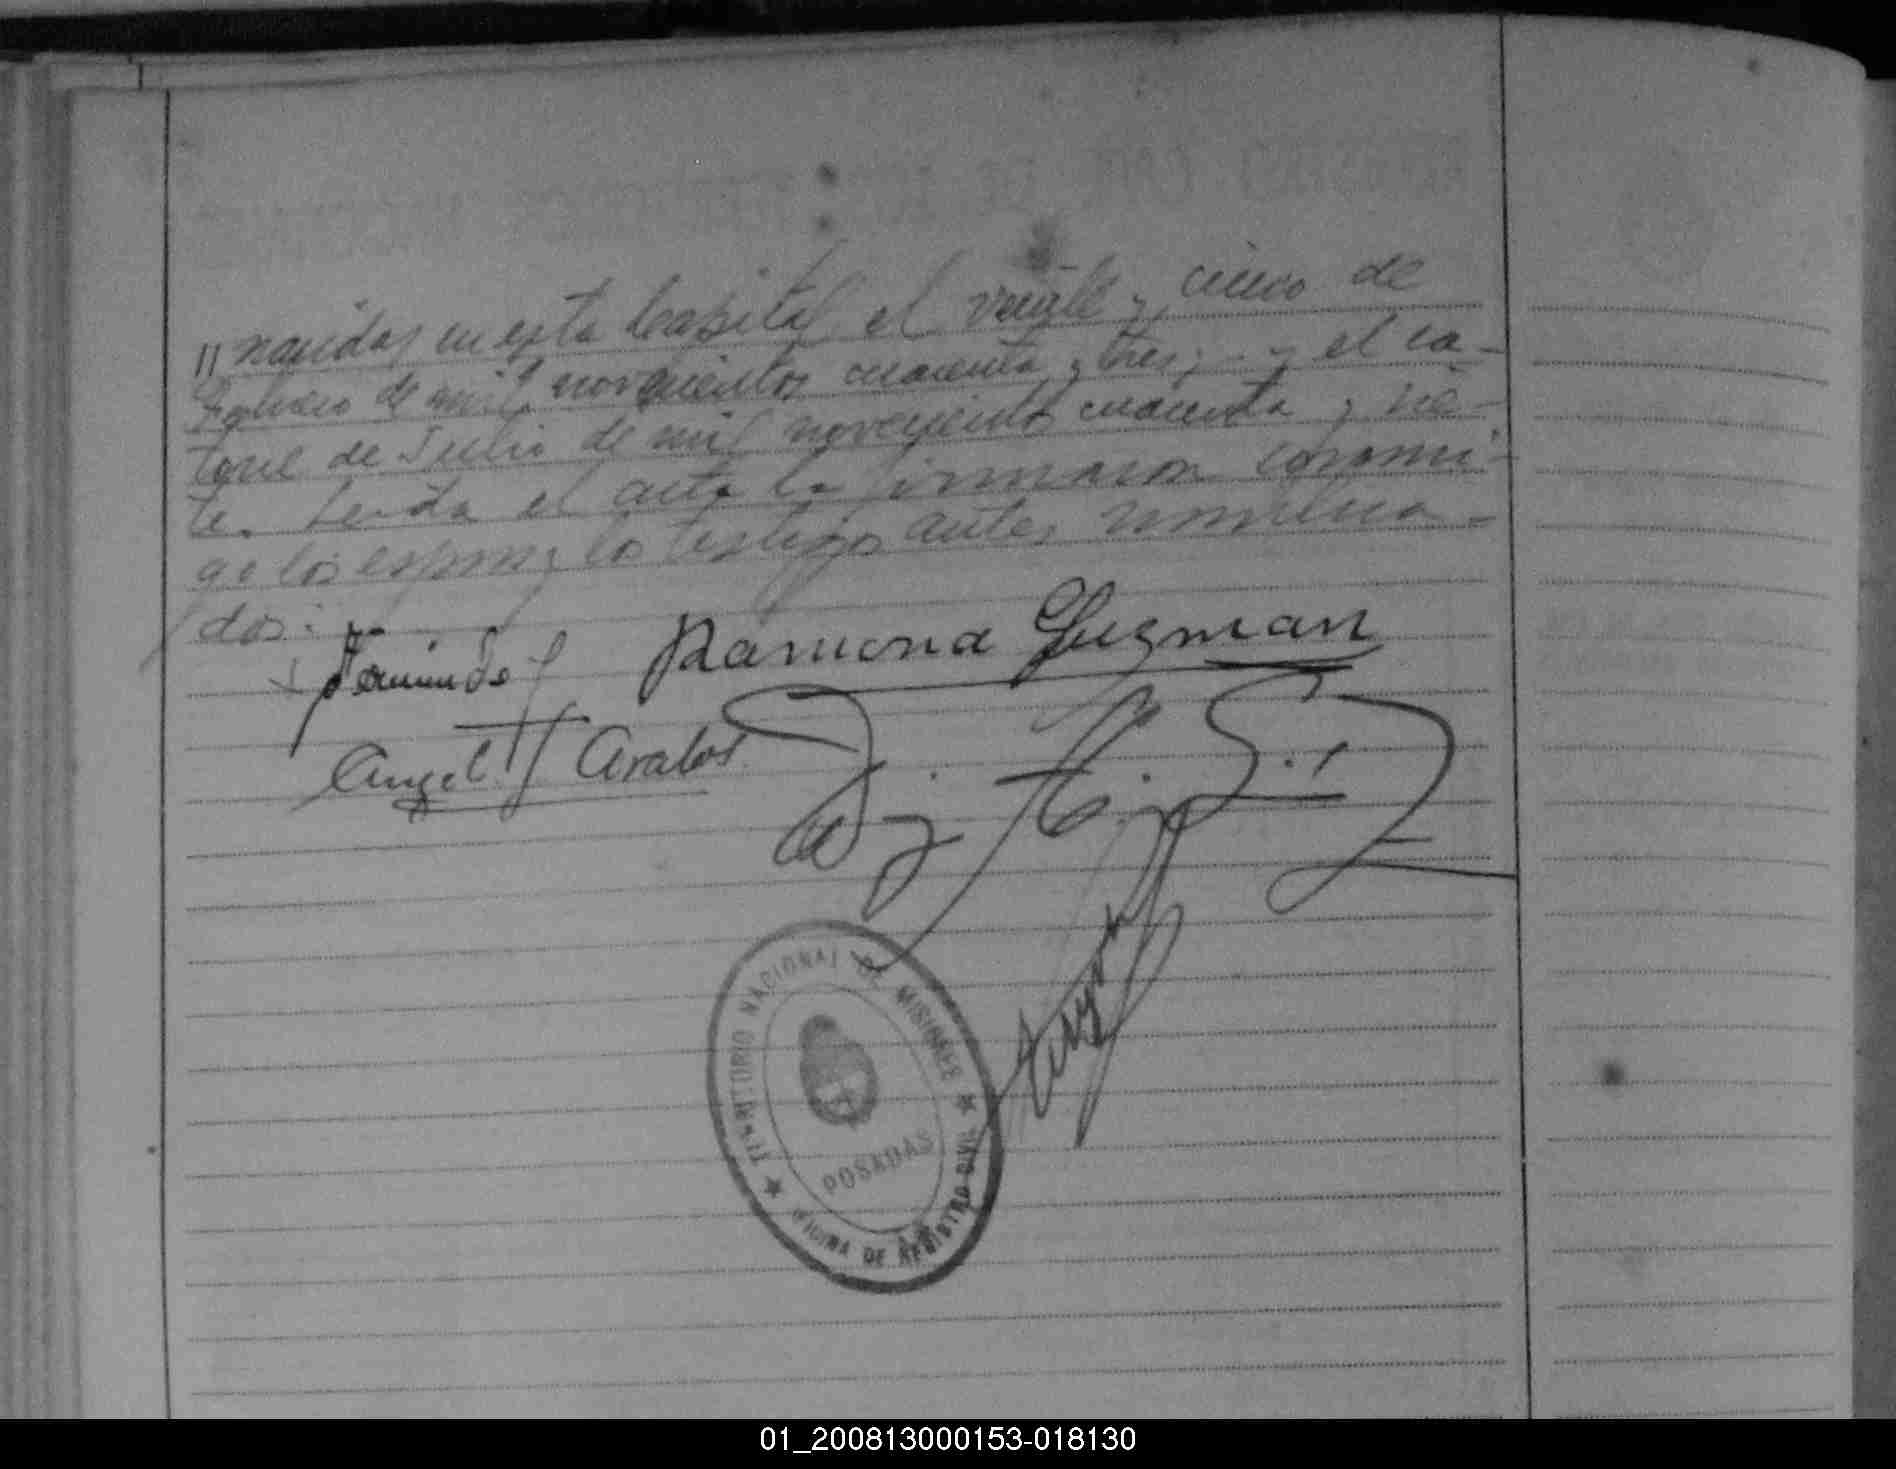 " nacidas en esta Capital el veinte y cinco de
Febrero de mil novecientos cuarenta y tres; - y el ca-
torce de Julio de mil novecientos cuarenta y sie-
te. Leida el acta la firmaron conmi-
go los esposos y los testigos antes nombra-
dos:
Ramona Guzman
Angel Avalos
TERRITORIO NACIONAL DE MISIONES
POSADAS
OFICINA DE REGISTRO CIVIL
01_200813000153-018130